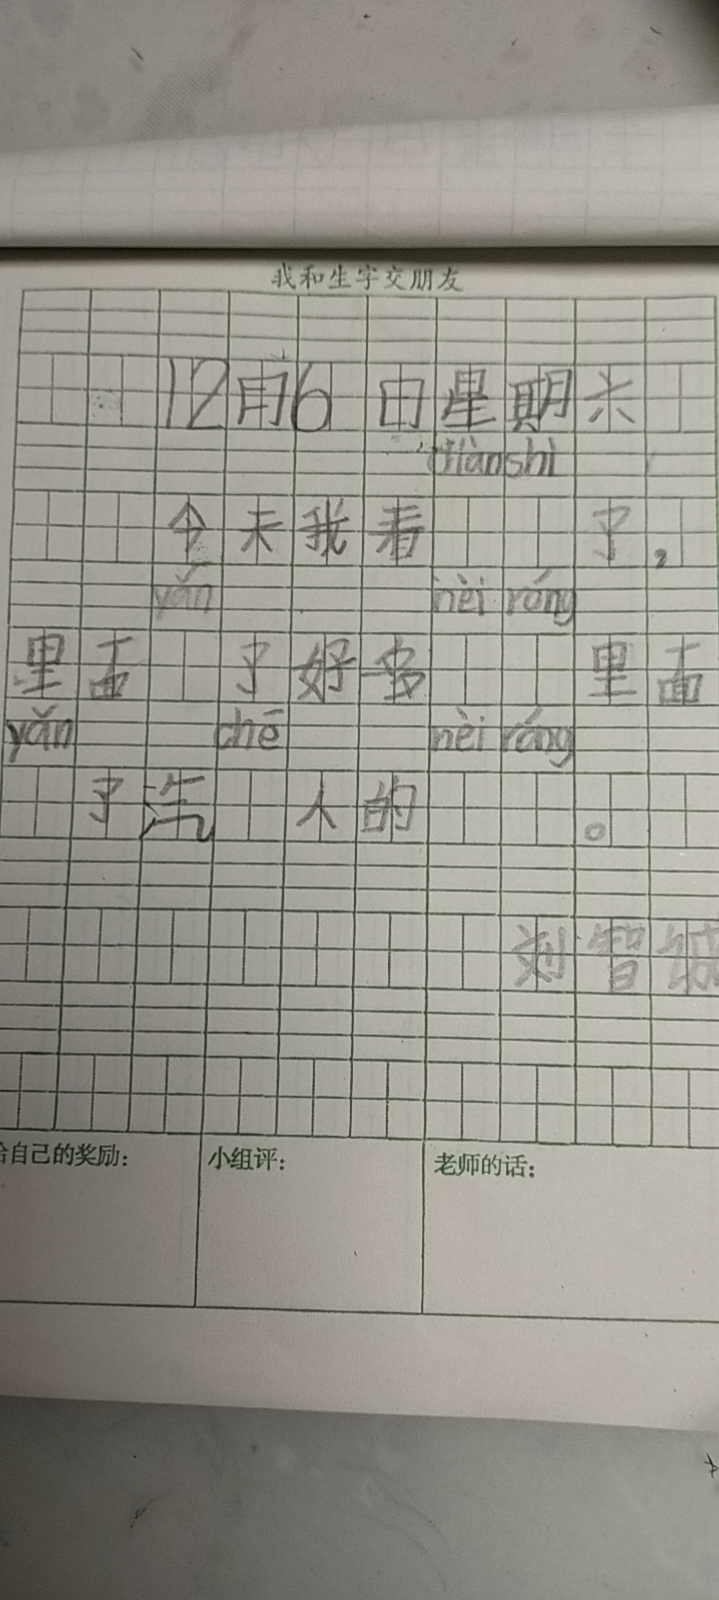 我和生字交朋友
12月6日星期六
diànshì
今天我看 了，
yǎn nèi róng
里面 了好多 里面
yǎn chē nèi róng
了汽 人的 。
刘智城
给自己的奖励： 小组评： 老师的话：